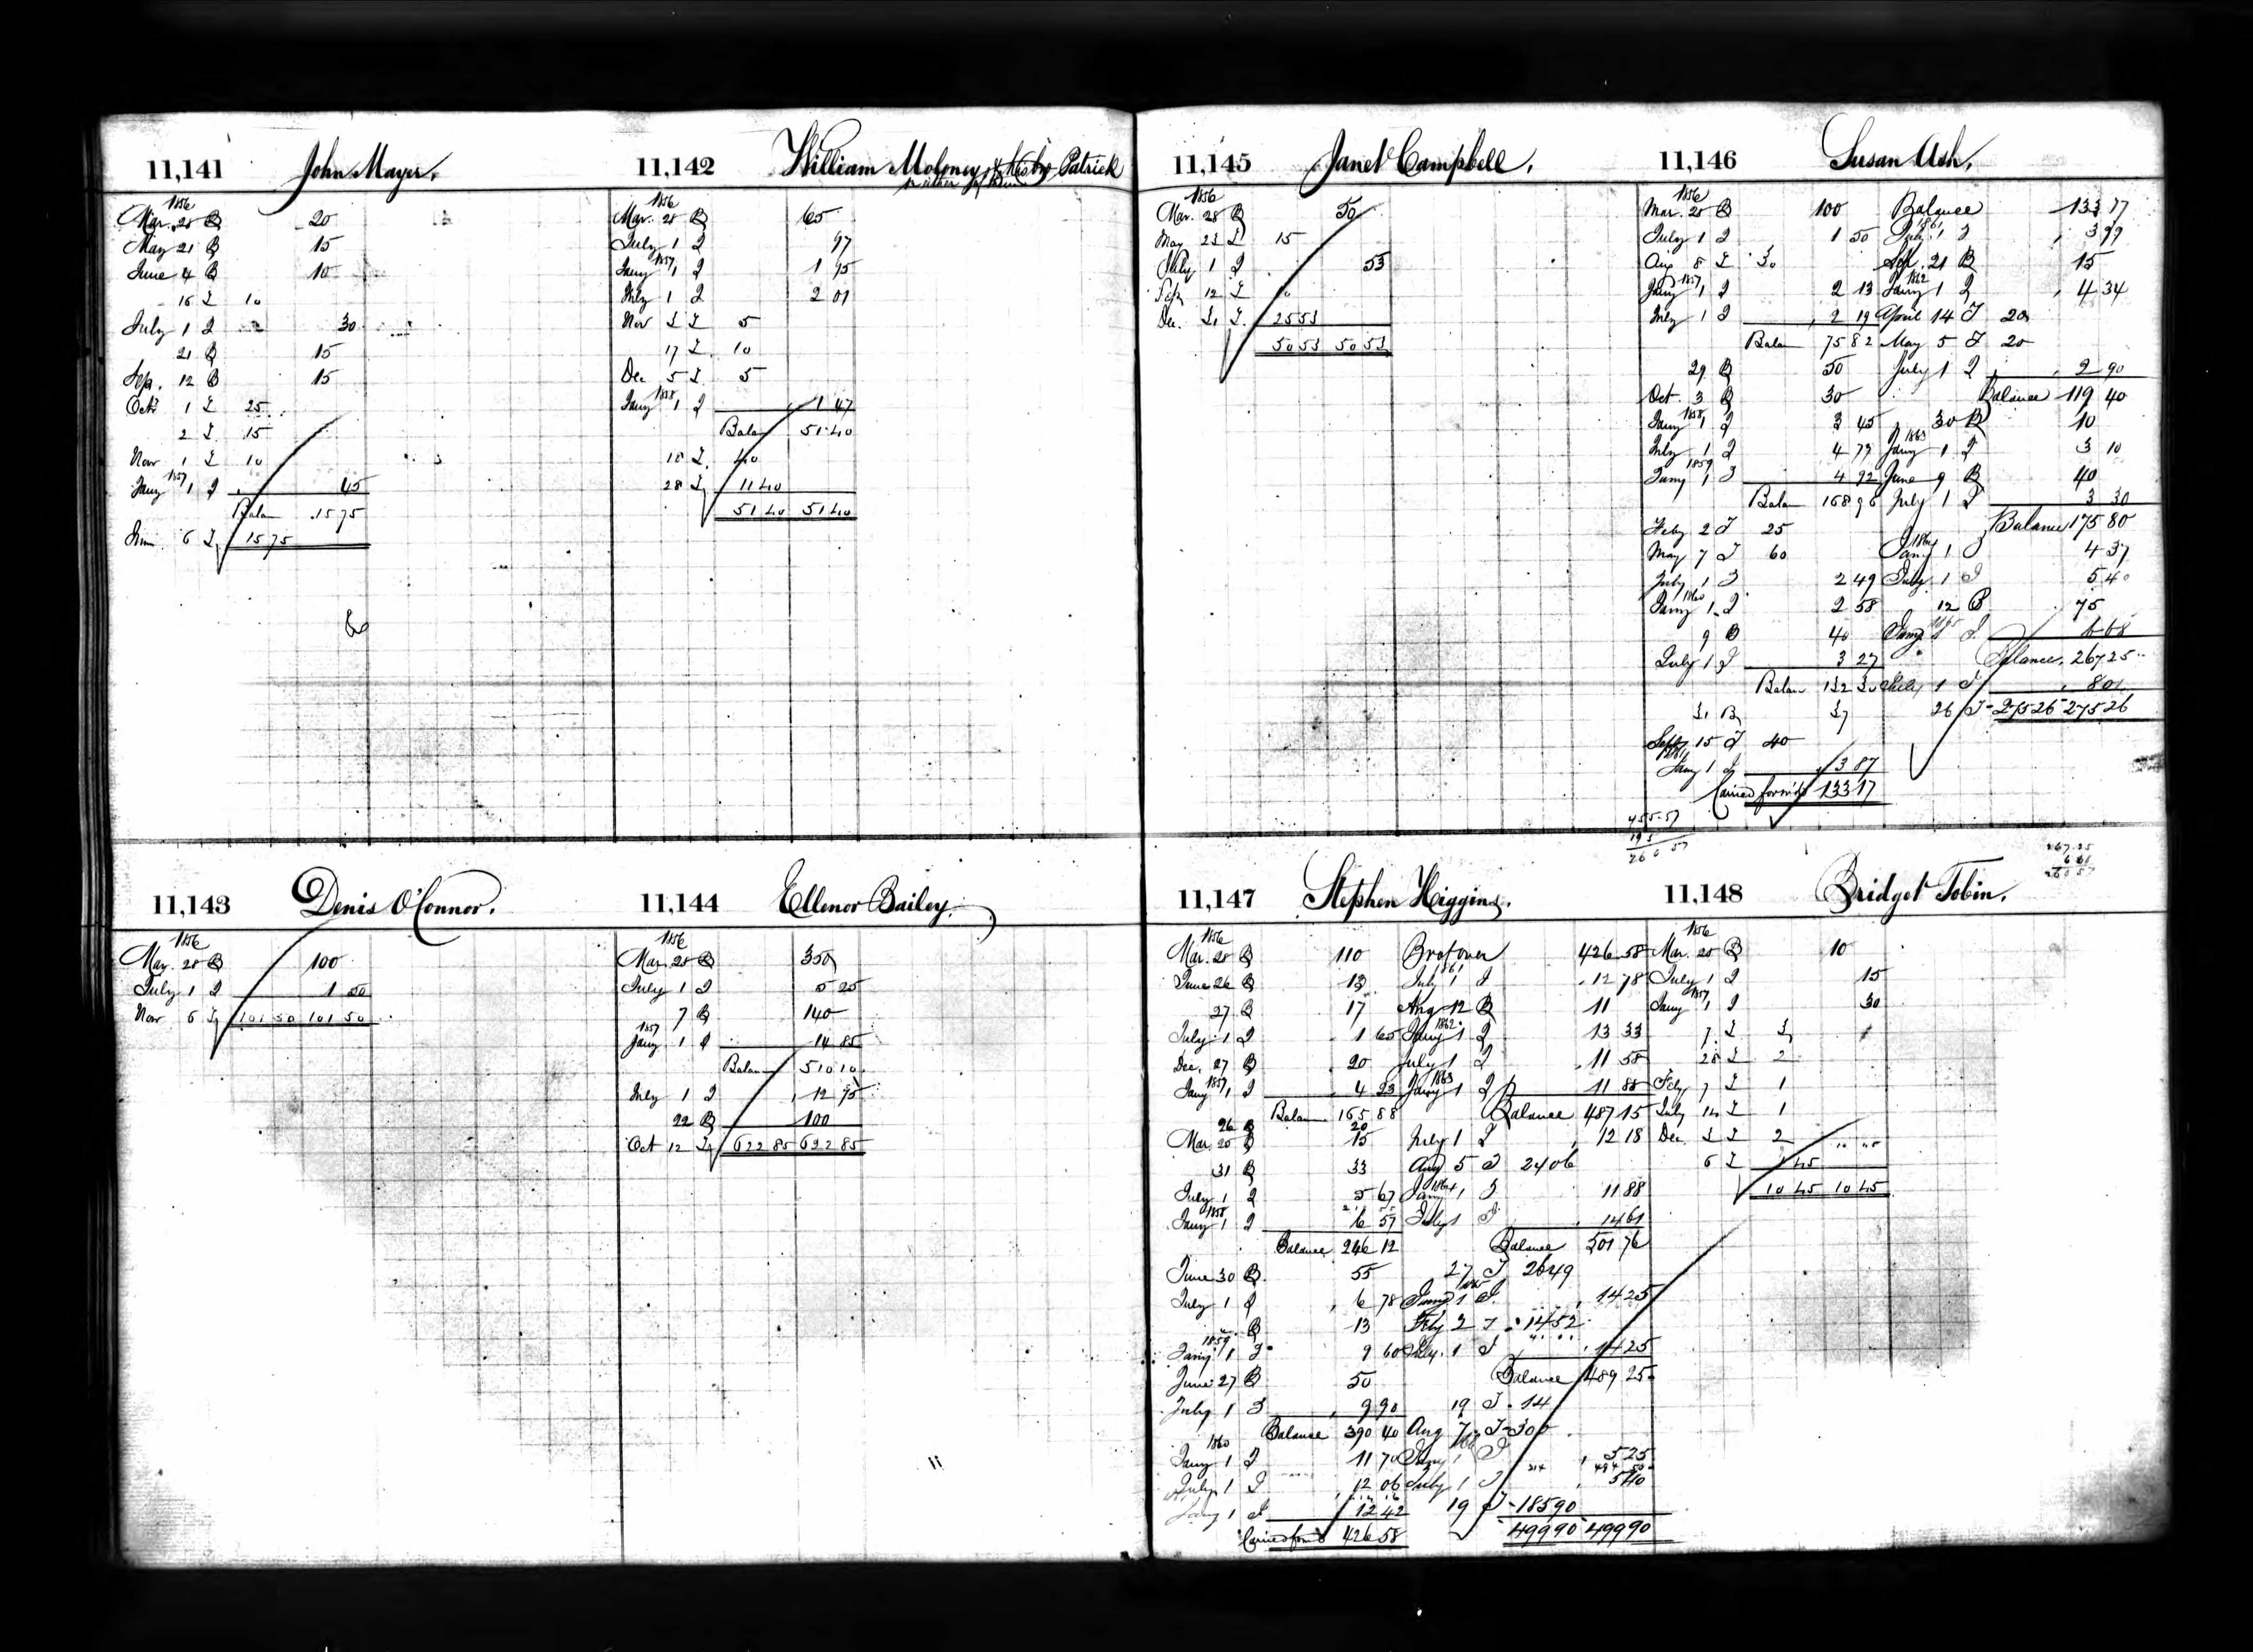 11,141 John Mayer.
1856
Mar. 28 B 20
May 21 B 15
June 4 B 10
16 T 10
July 1 I 30
21 B 15
Sep. 12 B 15
Oct 1 T 25
2 T 15
Nov 1 T 10
1857
Jany 1 I 45
Balan 15 75
6 T 15 75
11,142 William Moloney or his bro Patrick
1856
Mar. 28 B 65
July 1 I 97
1857
Jany 1 I 1 95
July 1 I 2 01
Nov 3 T 5
17 T 10
Dec 5 T 5
1858
Jany 1 I 1 47
Balan 51 40
18 T 40
28 T 11 40
51 40 51 40
11,143 Denis O'Connor.
1856
Mar. 28 B 100
July 1 I 1 50
Nov 6 T 101 50 101 50
11,144 Ellenor Bailey
1856
Mar. 28 B 350
July 1 I 5 25
7 B 140
1857
Jany 1 I 14 85
Balan 510 10
July 1 I 12 75
22 B 100
Oct 12 T 622 85 622 85
11,145 Janet Campbell.
1856
Mar. 28 B 50
May 23 T 15
July 1 I 53
Sep 12 T 10
Dec. 31 T 25 53
50 53 50 53
11,146 Susan Ash.
1856
Mar. 28 B 100
July 1 I 1 50
Aug 8 T 30
1857
Jany 1 I 2 13
July 1 I 2 19
Balan 75 82
29 B 50
Oct. 3 B 30
1858
Jany 1 I 3 45
July 1 I 4 77
1859
Jany 1 I 4 92
Balan 168 96
Feby 2 T 25
May 7 T 60
July 1 I 2 49
1860
Jany 1 I 2 58
9 B 40
July 1 I 3 27
Balan 132 30
31 B 37
Sept 15 T 40
1861
Jany 1 I 3 87
Carried forw'd 133 17
Balance 133 17
1861
July 1 I 3 99
Sep. 21 B 15
1862
Jany 1 I 4 34
April 14 T 20
May 5 T 20
July 1 I 2 90
Balance 119 40
30 B 10
1863
Jany 1 I 3 10
June 9 B 40
July 1 I 3 30
Balance 175 80
1864
Jany 1 I 4 37
July 1 I 5 40
12 B 75
1865
Jany 1 I 6 68
Balance 267 25
July 1 I 8 01
26 T 275 26 275 26
455.57
195
260 57
267.25
6 68
260 57
11,147 Stephen Higgins.
1856
Mar. 28 B 110
June 26 B 13
27 B 17
July 1 I 1 65
Dec. 27 B 20
1857
Jany 1 I 4 23
Balan 165 88
26 B 20
Mar. 20 B 15
31 B 33
July 1 I 5 67
1858
Jany 1 I 6 57
Balance 246 12
June 30 B 55
July 1 I 6 78
B 13
1859
Jany 1 I 9 60
June 27 B 50
July 1 I 9 90
Balance 390 40
1860
Jany 1 I 11 70
July 1 I 12 06
Jany 1 I 12 42
Carried for'd 426 58
Bro't over 426 58
1861
July 1 I 12 78
Aug 12 B 11
1862
Jany 1 I 13 33
July 1 I 11 58
1863
Jany 1 I 11 88
Balance 487 15
July 1 I 12 18
Aug 5 T 24 06
1864
Jany 1 I 11 88
July 1 I 14 61
Balance 501 76
27 T 26 49
1865
Jany 1 I 14 25
Feby 2 T 14 52
July 1 I 14 25
Balance 489 25
19 T 14
Aug 7 T 300
Jany 1 I 5 25
July 1 I 5 40
19 T 185 90
499 90 499 90
11,148 Bridget Tobin.
1856
Mar. 28 B 10
July 1 I 15
1857
Jany 1 I 30
7 T 3
28 T 2
Feby 7 T 1
July 14 T 1
Dec. 3 T 2
6 T 1 45
10 45 10 45